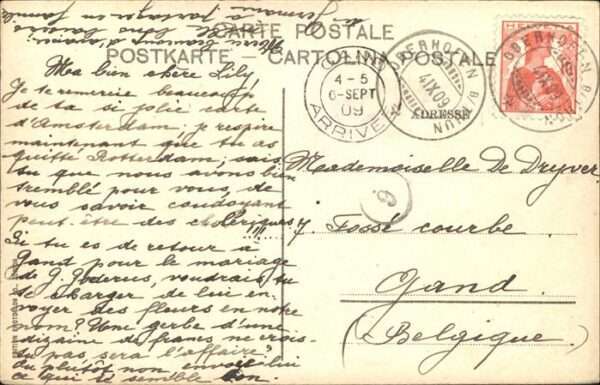 CARTE POSTALE
POSTKARTE - CARTOLINA POSTALE
ADRESSE
HELVETIA
OBERHOFEN B. THUN
4 IX 09
OBERHOFEN B. THUN
4 IX 09
4-5
6-SEPT
09
ARRIVEE
Ma bien chère Lily,
Je te remercie beaucoup
de ta si jolie carte
d'Amsterdam; je respire
maintenant que tu as
quitté Rotterdam; sais
tu que nous avons bien
tremblé pour vous, de
vous savoir coudoyant
peut-être des cholériques
!!!
Si tu es de retour à
Gand pour le mariage
de J. Goderus, voudrais tu
te charger de lui en-
voyer des fleurs en notre
nom? Une gerbe d'une
dizaine de francs ne crois-
tu pas sera l'affaire
Ou plutôt non envoie lui
ce qui te semble bon.
Merci d'avance
à partager en famille
Germaine
Mademoiselle De Dryver
7. Fossé courbe
Gand.
(Belgique)
9